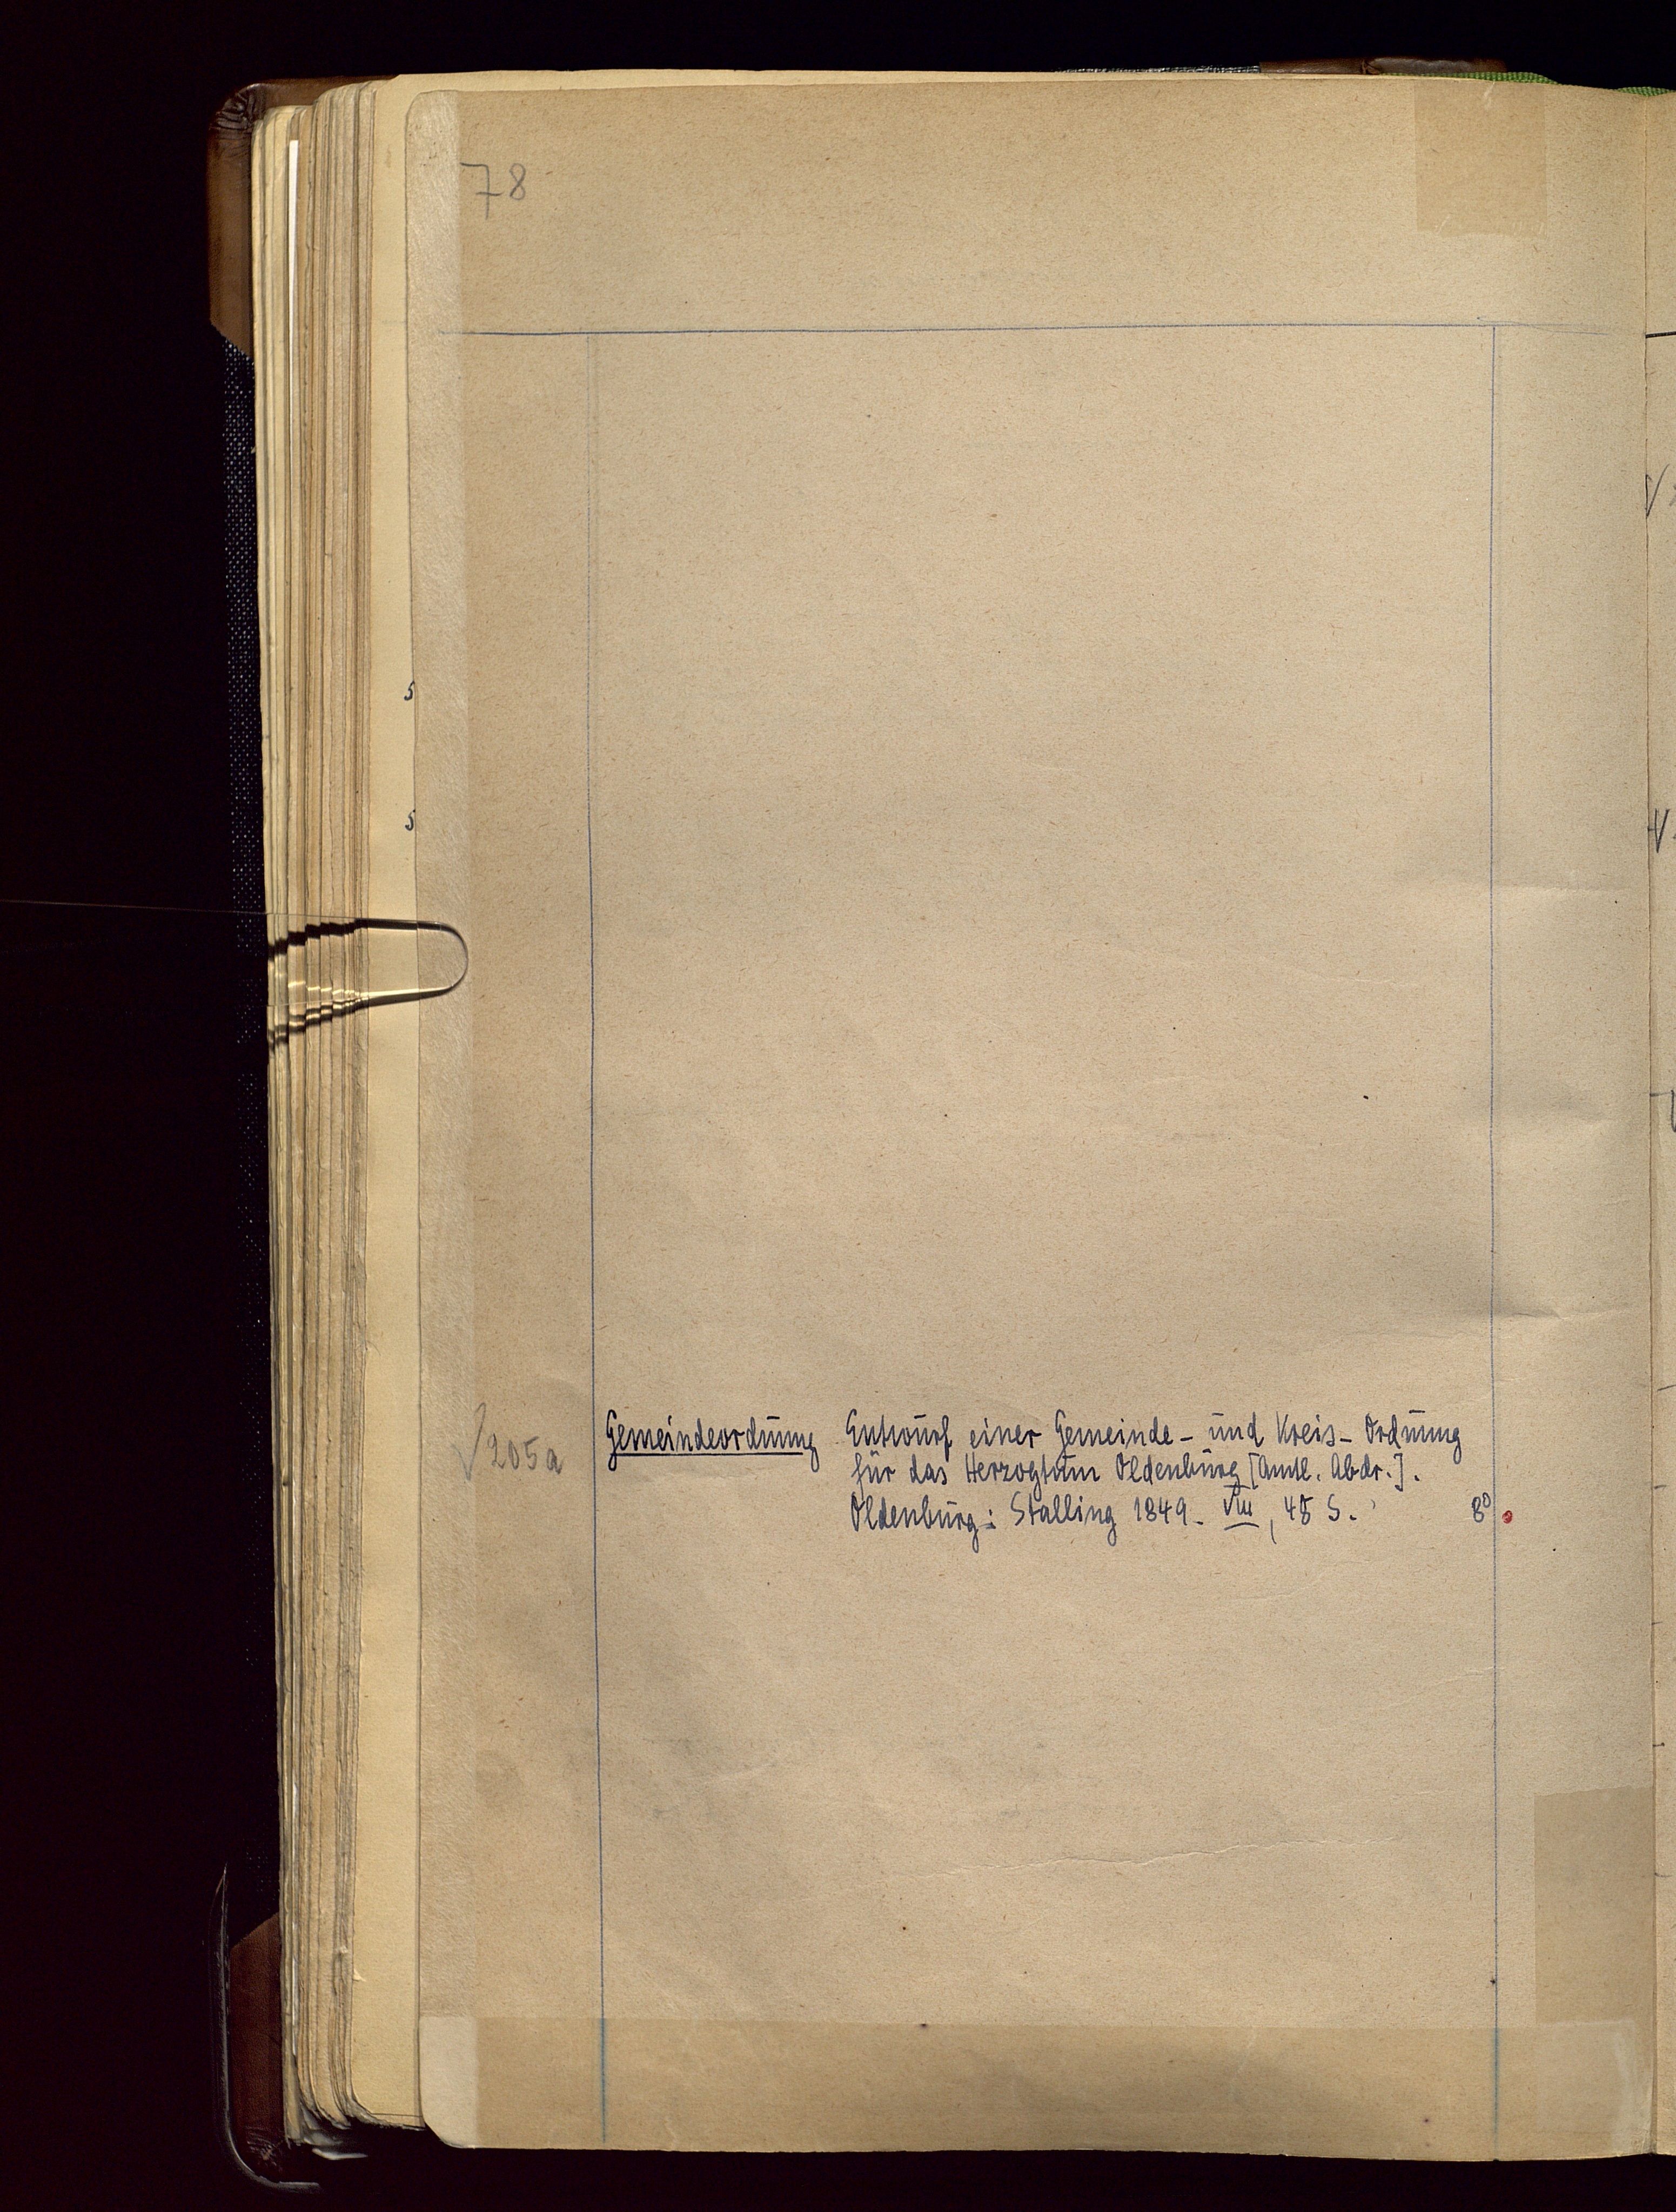 78
√205a Gemeindeordnung Entwurf einer Gemeinde- und Kreis-Ordnung
für das Herzogtum Oldenburg [Amtl. Abdr.].
Oldenburg: Stalling 1849. VIII, 48 S. 8°